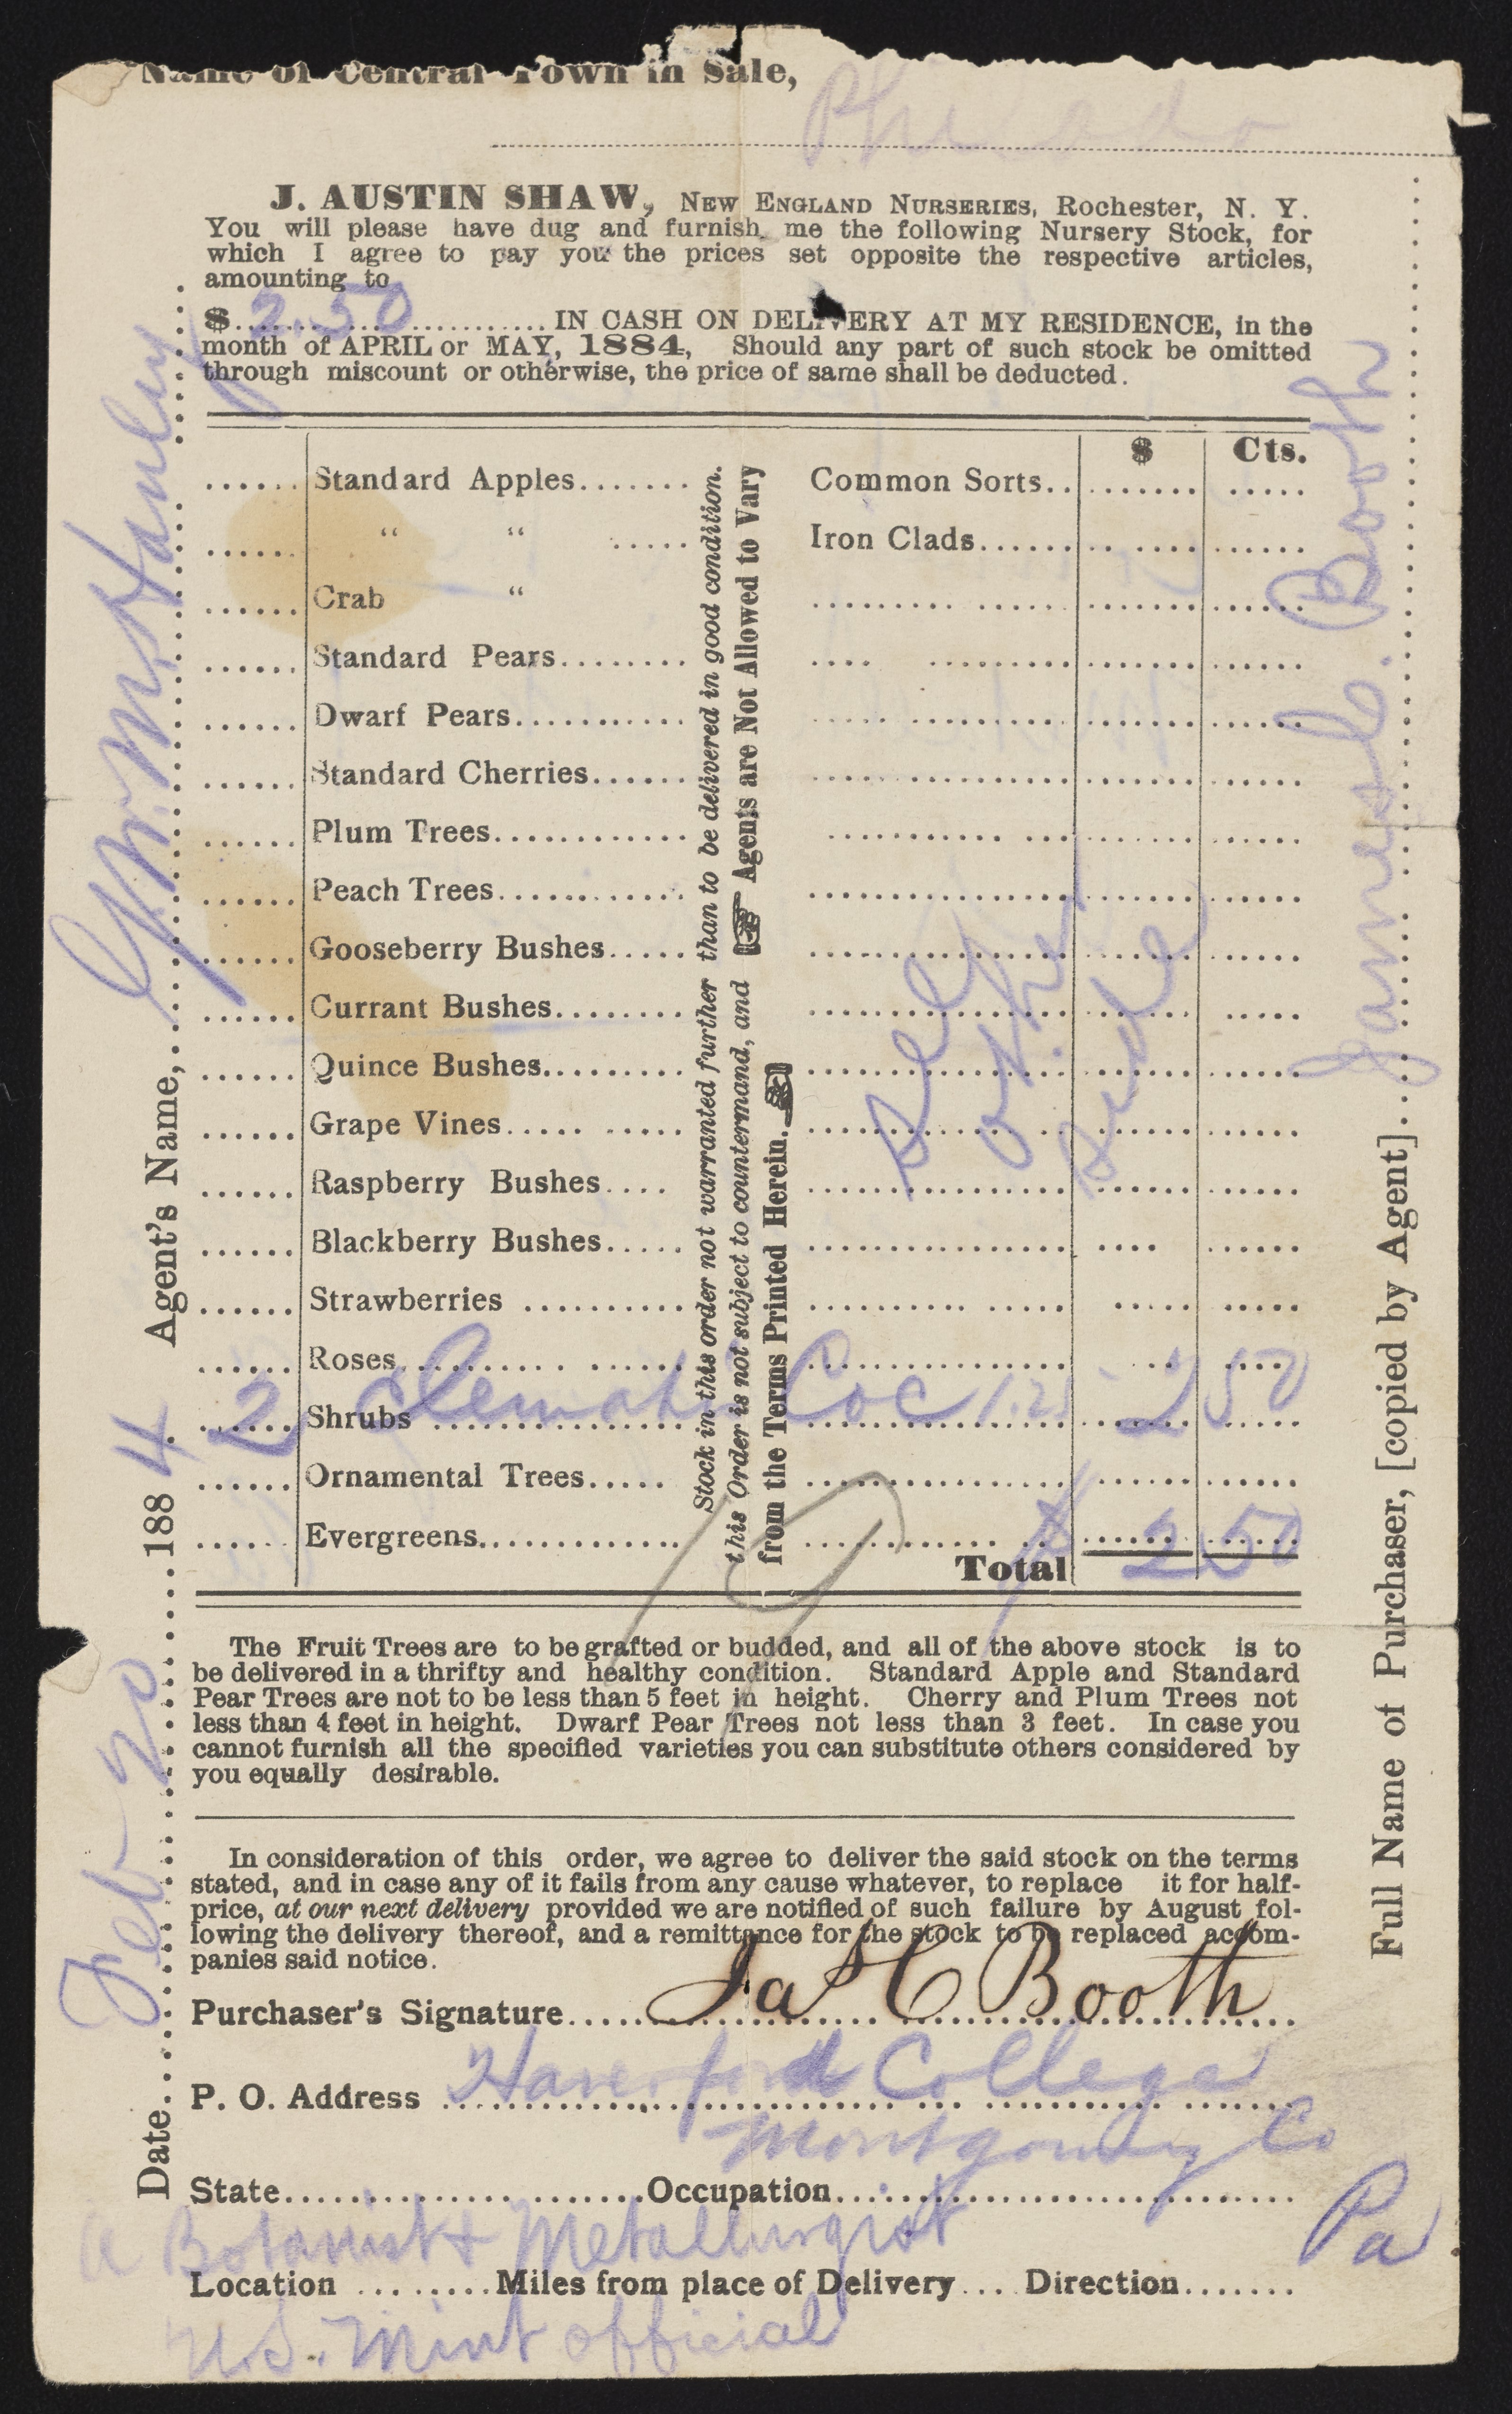 Name of Central Town in Sale,
J. AUSTIN SHAW, NEW ENGLAND NURSERIES, Rochester, N. Y.
You will please have dug and furnish me the following Nursery Stock, for
which I agree to pay you the prices set opposite the respective articles,
amounting to
$ 2.50 IN CASH ON DELIVERY AT MY RESIDENCE, in the
month of APRIL or MAY, 1884, Should any part of such stock be omitted
through miscount or otherwise, the price of same shall be deducted.
$ Cts.
Standard Apples....... Common Sorts..
“ “ ..... Iron Clads......
Crab “
Standard Pears........
Dwarf Pears...........
Standard Cherries......
Plum Trees............
Peach Trees............
Gooseberry Bushes.....
Currant Bushes........
Quince Bushes.........
Grape Vines..... .....
Raspberry Bushes....
Blackberry Bushes.....
Strawberries ..........
Roses.......... ......
Shrubs ..............
2 Clematis Coc 1.25 2 50
Ornamental Trees.....
Evergreens.............
Total $ 2 50
See other side
Stock in this order not warranted further than to be delivered in good condition.
this Order is not subject to countermand, and ☞ Agents are Not Allowed to Vary
from the Terms Printed Herein. ☜
The Fruit Trees are to be grafted or budded, and all of the above stock is to
be delivered in a thrifty and healthy condition. Standard Apple and Standard
Pear Trees are not to be less than 5 feet in height. Cherry and Plum Trees not
less than 4 feet in height. Dwarf Pear Trees not less than 3 feet. In case you
cannot furnish all the specified varieties you can substitute others considered by
you equally desirable.
In consideration of this order, we agree to deliver the said stock on the terms
stated, and in case any of it fails from any cause whatever, to replace it for half-
price, at our next delivery provided we are notified of such failure by August fol-
lowing the delivery thereof, and a remittance for the stock to be replaced accom-
panies said notice.
Purchaser's Signature..... Jas C Booth
P. O. Address Haverford College
Montgomery Co
State........ Occupation........ Pa
A Botanist & Metallurgist
Location ........ Miles from place of Delivery... Direction.......
U.S. Mint official
Date Feb 20 1884 Agent's Name, Wm. M. Hanley
Full Name of Purchaser, [copied by Agent]... James C. Booth